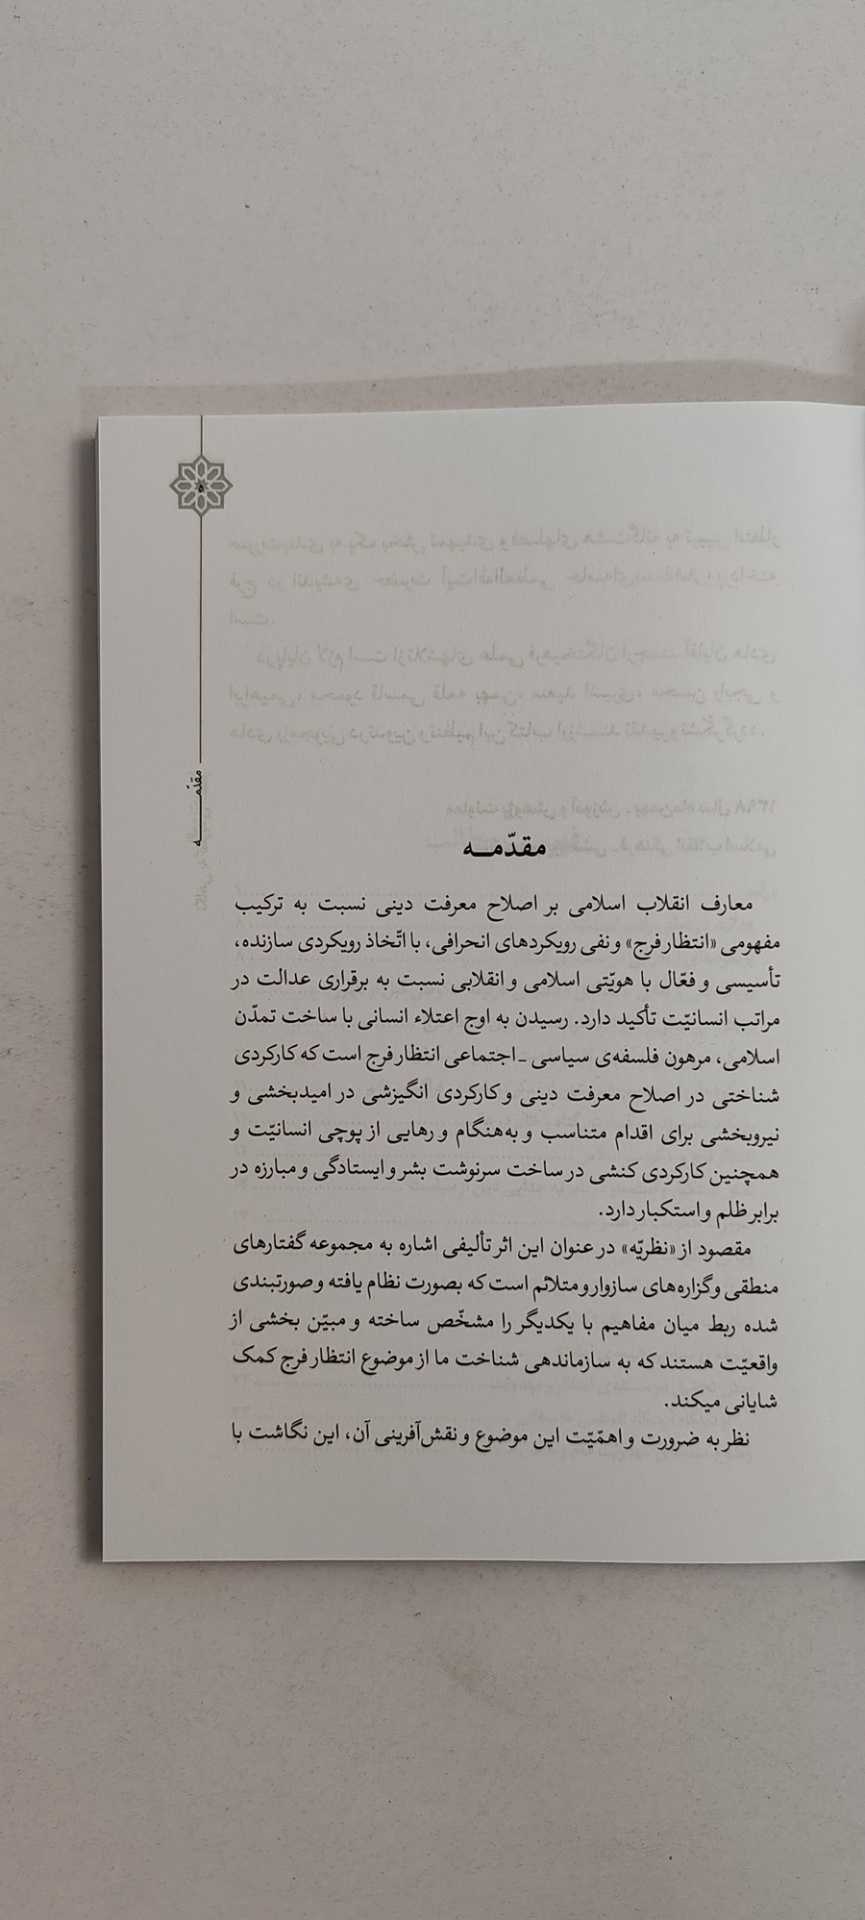 ۵
مقدّمـــــــه
مقدّمــه
معارف انقلاب اسلامی بر اصلاح معرفت دینی نسبت به ترکیب
مفهومی «انتظار فرج» و نفی رویکردهای انحرافی، با اتّخاذ رویکردی سازنده،
تأسیسی و فعّال با هویّتی اسلامی و انقلابی نسبت به برقراری عدالت در
مراتب انسانیّت تأکید دارد. رسیدن به اوج اعتلاء انسانی با ساخت تمدّن
اسلامی، مرهون فلسفه‌ی سیاسی ـ اجتماعی انتظار فرج است که کارکردی
شناختی در اصلاح معرفت دینی و کارکردی انگیزشی در امیدبخشی و
نیروبخشی برای اقدام متناسب و به‌هنگام و رهایی از پوچی انسانیّت و
همچنین کارکردی کنشی در ساخت سرنوشت بشر و ایستادگی و مبارزه در
برابر ظلم و استکبار دارد.
مقصود از «نظریّه» در عنوان این اثر تألیفی اشاره به مجموعه گفتارهای
منطقی و گزاره‌های سازوار و متلائم است که بصورت نظام یافته و صورتبندی
شده ربط میان مفاهیم با یکدیگر را مشخّص ساخته و مبیّن بخشی از
واقعیّت هستند که به سازماندهی شناخت ما از موضوع انتظار فرج کمک
شایانی میکند.
نظر به ضرورت و اهمّیّت این موضوع و نقش‌آفرینی آن، این نگاشت با